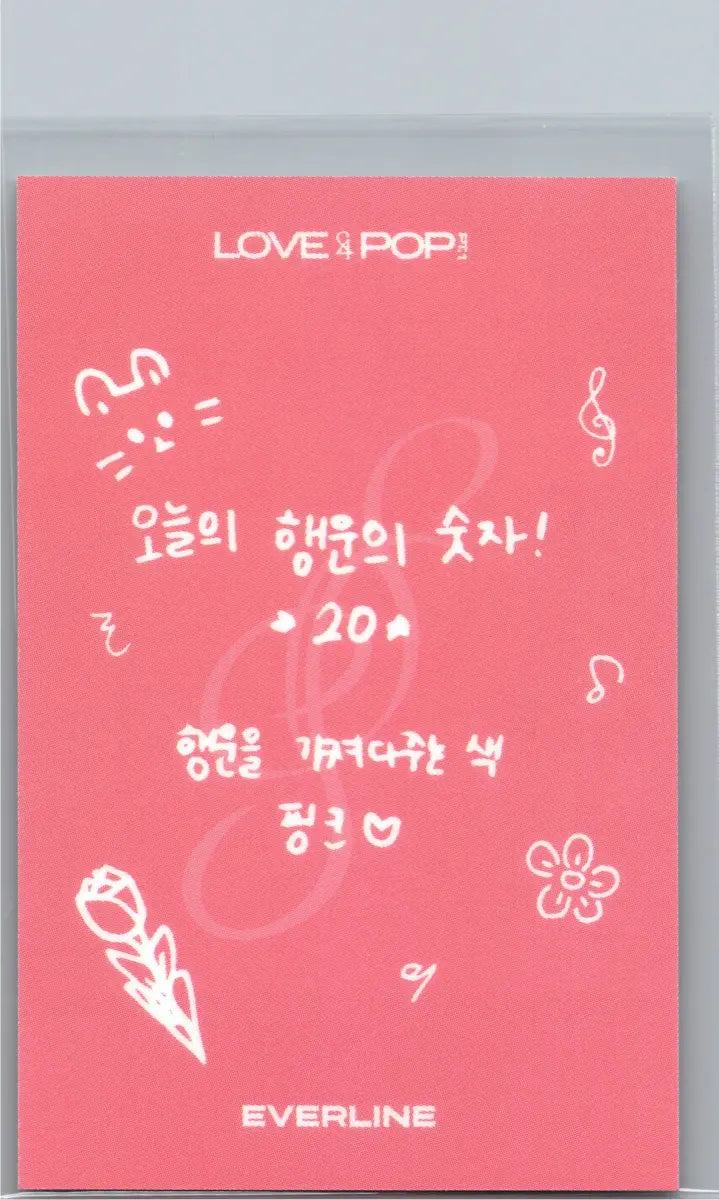 LOVE & POP pt.1
오늘의 행운의 숫자!
20
행운을 가져다주는 색
핑크♡
EVERLINE